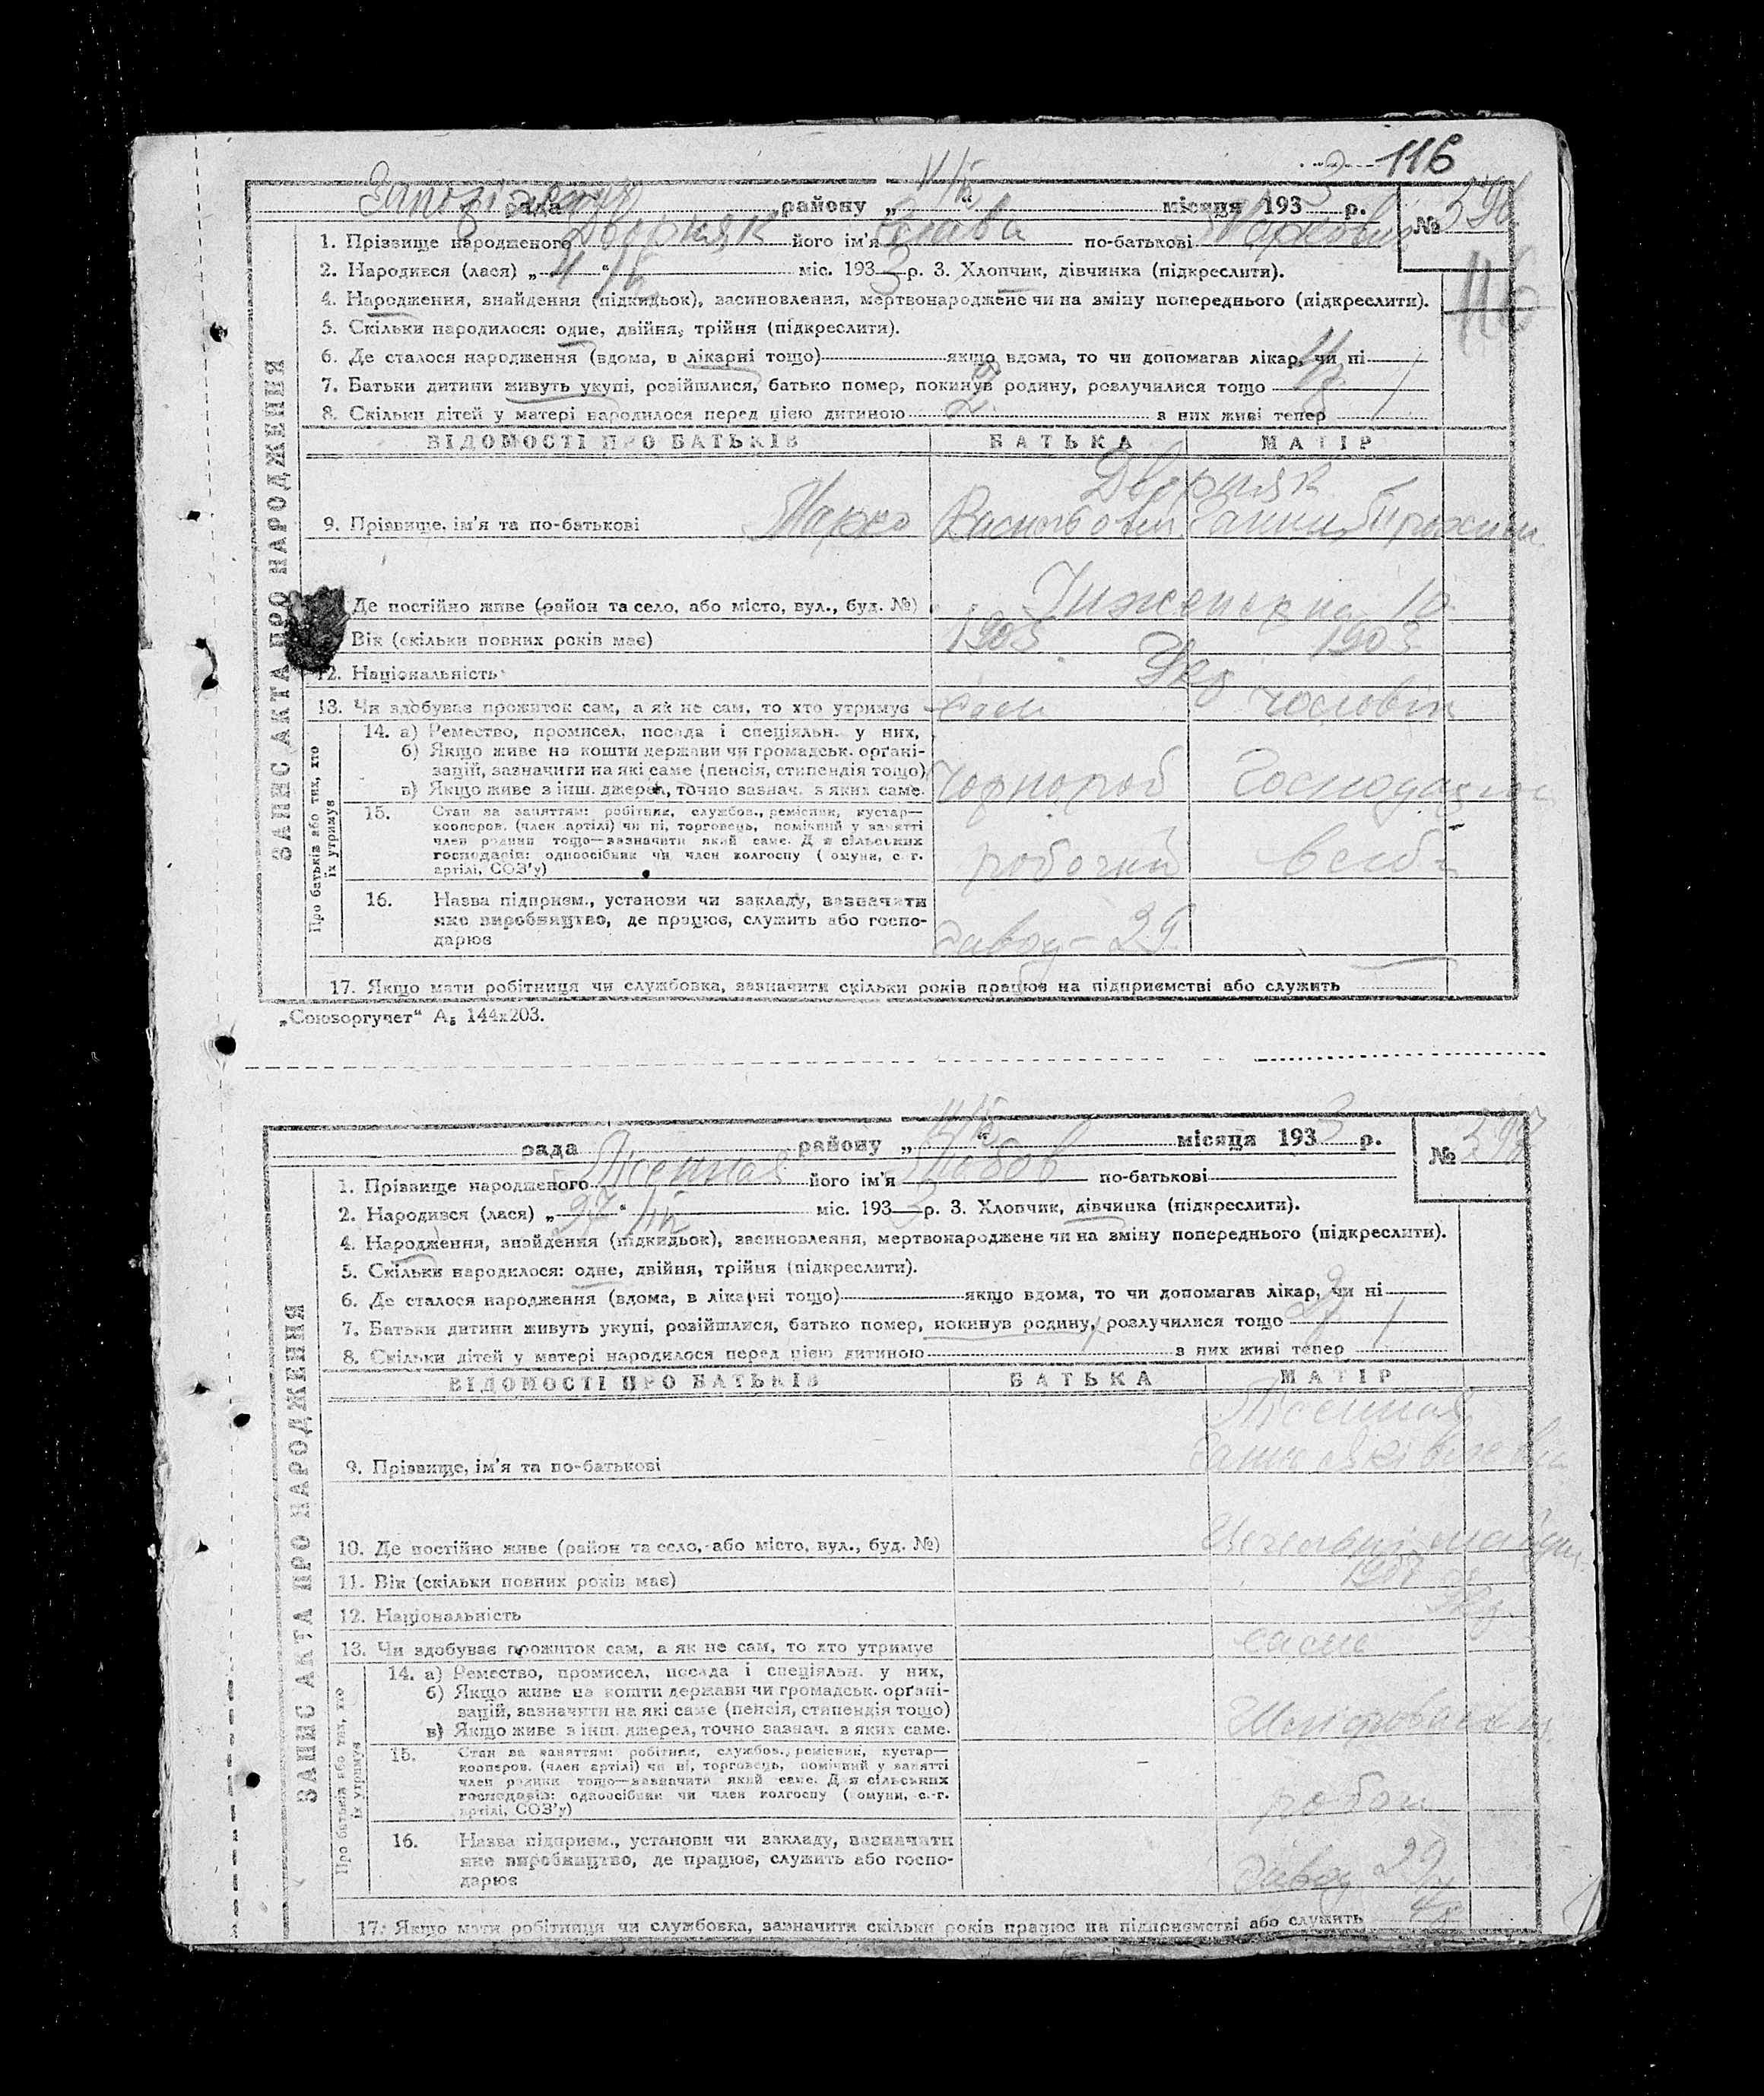 116
рада району „ “ місяця 1933 р. №
1. Прізвище народженого Дворняк його ім'я Слава по-батькові Маркович
2. Народився (лася) „ “ міс. 1933 р. 3. Хлопчик, дівчинка (підкреслити).
116
4. Народження, знайдення (підкидьок), засиновлення, мертвонароджене чи на зміну попереднього (підкреслити).
5. Скільки народилося: одне, двійня, трійня (підкреслити).
6. Де сталося народження (вдома, в лікарні тощо) якщо вдома, то чи допомагав лікар, чи ні
7. Батьки дитини живуть укупі, розійшлися, батько помер, покинув родину, розлучилися тощо
8. Скільки дітей у матері народилося перед цією дитиною 2 з них живі тепер
ВІДОМОСТІ ПРО БАТЬКІВ БАТЬКА МАТІР
Дворняк
9. Прізвище, ім'я та по-батькові Марко Васильович Ганна
Де постійно живе (район та село, або місто, вул., буд. №) Інженерна 10
Вік (скільки повних років має) 1905 1905
12. Національність Укр
13. Чи здобуває прожиток сам, а як не сам, то хто утримує сам чоловік
14. а) Ремество, промисел, посада і спеціяльн. у них,
б) Якщо живе на кошти держави чи громадськ. орґані-
зацій, зазначити на які саме (пенсія, стипендія тощо)
в) Якщо живе з інш. джерел, точно зазнач. з яких саме.
Чорнороб
15. Стан за заняттям: робітник, службов., ремісник, кустар—
кооперов. (член артілі) чи ні, торговець, помічний у занятті
член родини тощо—зазначити який саме. Для сільських
господарів: одноосібник чи член колгоспу (комуни, с.-г.
артілі, СОЗ'у)
робочий
16. Назва підприєм., установи чи закладу, зазначити
яке виробництво, де працює, служить або госпо-
дарює
Завод - 29
17. Якщо мати робітниця чи службовка, зазначити скільки років працює на підприємстві або служить
ЗАПИС АКТА ПРО НАРОДЖЕННЯ
Про батьків або тих, хто
їх утримує
„Союзоргучет“ А5 144х203.
рада району „ “ місяця 1933 р. № 597
1. Прізвище народженого його ім'я Любов по-батькові
2. Народився (лася) „ 27 “ міс. 1933 р. 3. Хлопчик, дівчинка (підкреслити).
4. Народження, знайдення (підкидьок), засиновлення, мертвонароджене чи на зміну попереднього (підкреслити).
5. Скільки народилося: одне, двійня, трійня (підкреслити).
6. Де сталося народження (вдома, в лікарні тощо) якщо вдома, то чи допомагав лікар, чи ні
7. Батьки дитини живуть укупі, розійшлися, батько помер, покинув родину, розлучилися тощо
8. Скільки дітей у матері народилося перед цією дитиною з них живі тепер
ВІДОМОСТІ ПРО БАТЬКІВ БАТЬКА МАТІР
9. Прізвище, ім'я та по-батькові
10. Де постійно живе (район та село, або місто, вул., буд. №)
11. Вік (скільки повних років має)
12. Національність Укр.
13. Чи здобуває прожиток сам, а як не сам, то хто утримує сама
14. а) Ремество, промисел, посада і спеціяльн. у них,
б) Якщо живе на кошти держави чи громадськ. орґані-
зацій, зазначити на які саме (пенсія, стипендія тощо)
в) Якщо живе з інш. джерел, точно зазнач. з яких саме.
15. Стан за заняттям: робітник, службов., ремісник, кустар—
кооперов. (член артілі) чи ні, торговець, помічний у занятті
член родини тощо—зазначити який саме. Для сільських
господарів: одноосібник чи член колгоспу (комуни, с.-г.
артілі, СОЗ'у)
16. Назва підприєм., установи чи закладу, зазначити
яке виробництво, де працює, служить або госпо-
дарює
Завод 29
17. Якщо мати робітниця чи службовка, зазначити скільки років працює на підприємстві або служить
ЗАПИС АКТА ПРО НАРОДЖЕННЯ
Про батьків або тих, хто
їх утримує